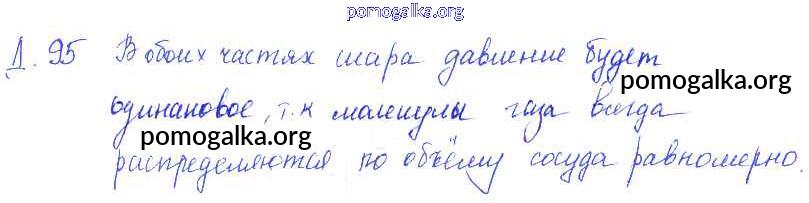 pomogalka.org
Д. 95 В обоих частях шара давление будет
pomogalka.org
одинаковое, т.к молекулы газа всегда
pomogalka.org
распределяются по объёму сосуда равномерно.